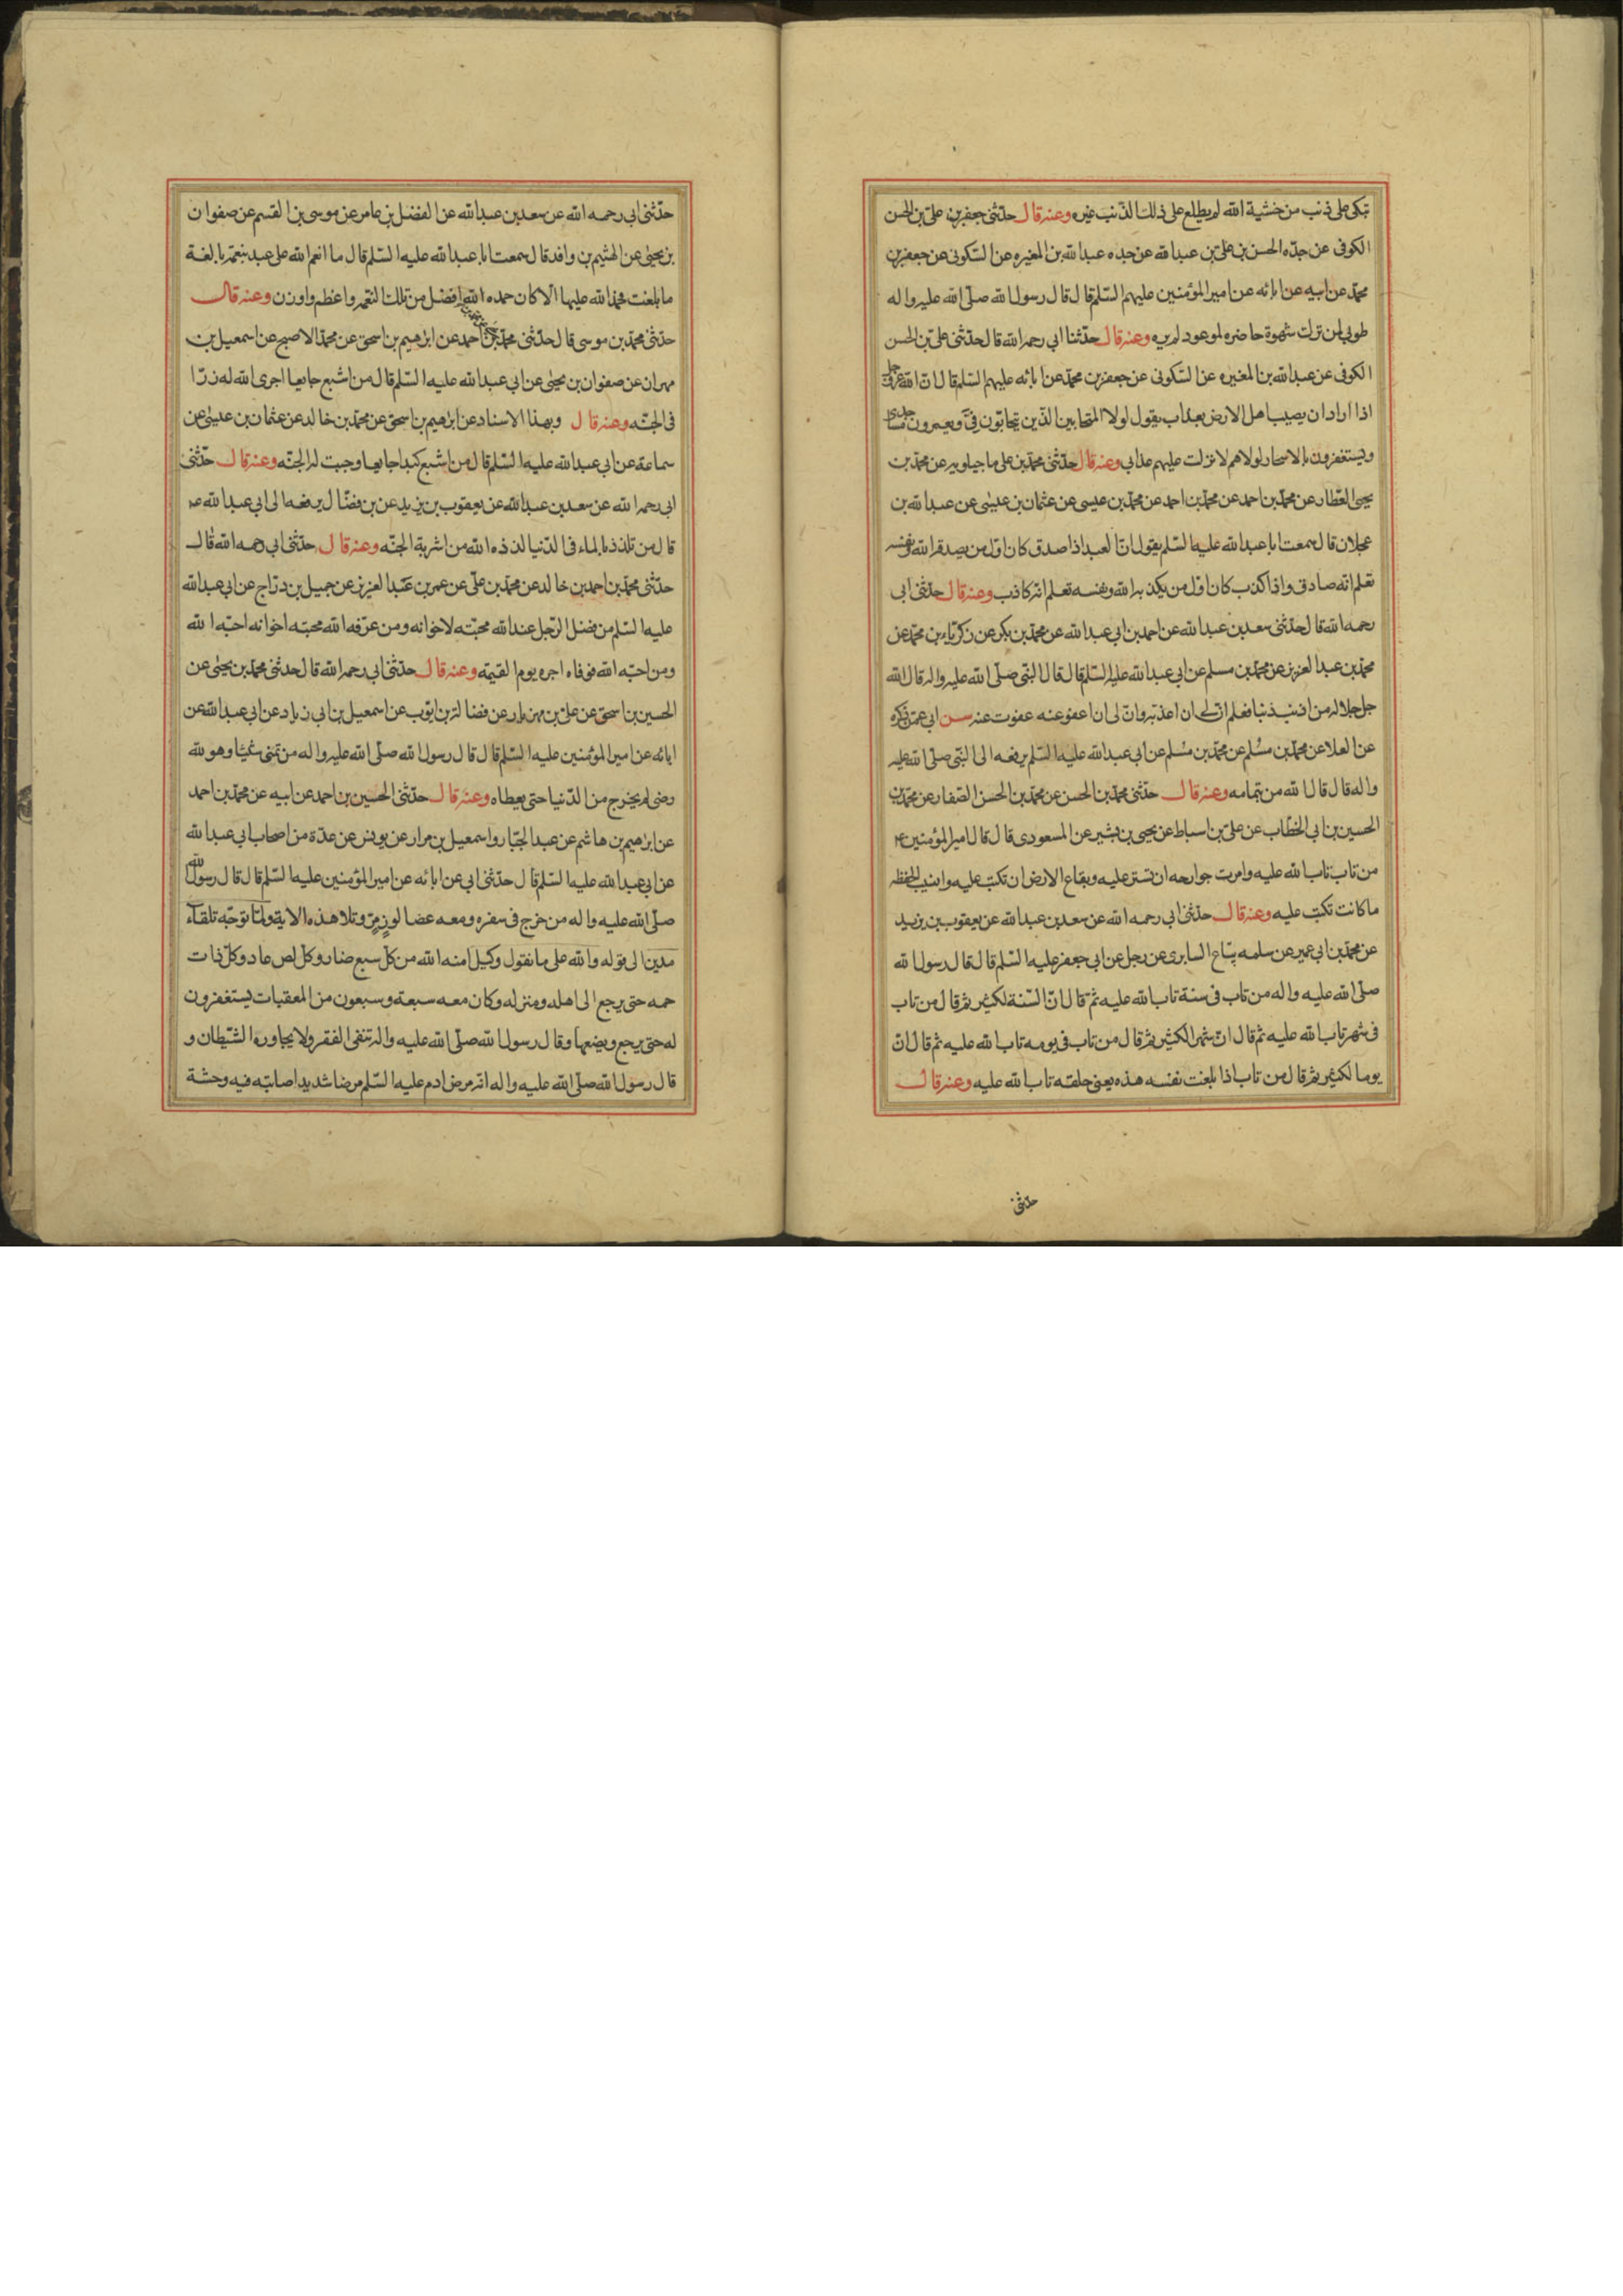 تبكى على ذنب من خشية الله لم يطلع على ذلك الذنب غيره وعنه قال حدثنى جعفر بن على بن الحسن
الكوفى عن جده الحسن بن على بن عبد الله عن جده عبد الله بن المغيره عن السكونى عن جعفر بن
محمد عن ابيه عن ابائه عن امير المؤمنين عليهم السلم قال قال رسول الله صلى الله عليه واله
طوبى لمن ترك شهوة حاضره لموعود لم يره وعنه قال حدثنا ابى رحمه الله قال حدثنى على بن الحسن
الكوفى عن عبد الله بن المغيره عن السكونى عن جعفر بن محمد عن ابائه عليهم السلم قال ان الله عز وجل
اذا اراد ان يصيب اهل الارض بعذاب يقول لولا المتحابين الذين يتحابون فى ويعمرون مساجدى
ويستغفرون بالاسحار لولاهم لانزلت عليهم عذابى وعنه قال حدثنى محمد بن على ماجيلويه عن محمد بن
يحيى العطار عن محمد بن احمد عن محمد بن احمد عن محمد بن عيسى عن عثمان بن عيسى عن عبد الله بن
عجلان قال سمعت ابا عبد الله عليه السلم يقول ان العبد اذا صدق كان اول من يصدقه الله ونفسه
تعلم انه صادق واذا كذب كان اول من يكذبه الله ونفسه تعلم انه كاذب وعنه قال حدثنى ابى
رحمه الله قال حدثنى سعد بن عبد الله عن احمد بن ابى عبد الله عن محمد بن بكر عن زكرياء بن محمد عن
محمد بن عبد العزيز عن محمد بن مسلم عن ابى عبد الله عليه السلم قال قال النبى صلى الله عليه واله قال الله
جل جلاله من اذنب ذنبا فعلم ان لى ان اعذبه وان لى ان اعفو عنه عفوت عنه سن ابى عمن ذكره
عن العلا عن محمد بن مسلم عن محمد بن مسلم عن ابى عبد الله عليه السلم يرفعه الى النبى صلى الله عليه
واله قال قال الله من تمامه وعنه قال حدثنى محمد بن الحسن عن محمد بن الحسن الصفار عن محمد بن
الحسين بن ابى الخطاب عن على بن اسباط عن يحيى بن بشير عن المسعودى قال قال امير المؤمنين ع
من تاب تاب الله عليه وامرت جوارحه ان تستر عليه وبقاع الارض ان تكتب عليه وانسيت الحفظه
ما كانت تكتب عليه وعنه قال حدثنى ابى رحمه الله عن سعد بن عبد الله عن يعقوب بن يزيد
عن محمد بن ابى عمير عن سلمه بياع السابرى عن رجل عن ابى جعفر عليه السلم قال قال رسول الله
صلى الله عليه واله من تاب فى سنة تاب الله عليه ثم قال ان السنة لكثير ثم قال من تاب
فى شهر تاب الله عليه ثم قال ان شهرا لكثير ثم قال من تاب فى يومه تاب الله عليه ثم قال ان
يوما لكثير ثم قال من تاب اذا بلغت نفسه هذه يعنى حلقه تاب الله عليه وعنه قال
حدثنى
حدثنى ابى رحمه الله عن سعد بن عبد الله عن الفضل بن عامر عن موسى بن القسم عن صفوان
بن يحيى عن الهثيم بن واقد قال سمعت ابا عبد الله عليه السلم قال ما انعم الله على عبد بنعمة بالغة
ما بلغت فحمد الله عليها الا كان حمده الله افضل من تلك النعمه واعظم واوزن وعنه قال
حدثنى محمد بن موسى قال حدثنى محمد بن احمد عن ابرهيم بن اسحق عن محمد الاصبح عن اسمعيل بن
مهران عن صفوان بن يحيى عن ابى عبد الله عليه السلم قال من اشبع جايعا اجرى الله له نهرا
فى الجنه وعنه قال وبهذا الاسناد عن ابرهيم بن اسحق عن محمد بن خالد عن عثمان بن عيسى عن
سماعة عن ابى عبد الله عليه السلم قال من اشبع كبدا جايعا وجبت له الجنه وعنه قال حدثنى
ابى رحمه الله عن سعد بن عبد الله عن يعقوب بن يزيد عن بن فضال يرفعه الى ابى عبد الله ع
قال من تلذذ بالماء فى الدنيا لذذه الله من اشربة الجنه وعنه قال حدثنى ابى رحمه الله قال
حدثنى محمد بن احمد بن خالد عن محمد بن على عن عمر بن عبد العزيز عن جميل بن دراج عن ابى عبد الله
عليه السلم من فضل الرجل عند الله محبته لاخوانه ومن عرفه الله محبته اخوانه احبه الله
ومن احبه الله فوفاه اجره يوم القيمة وعنه قال حدثنى ابى رحمه الله قال حدثنى محمد بن يحيى عن
الحسين بن اسحق عن على بن مهزيار عن فضالة بن ايوب عن اسمعيل بن ابى زياد عن ابى عبد الله عن
ابائه عن امير المؤمنين عليه السلم قال قال رسول الله صلى الله عليه واله من تمنى شيئا وهو لله
رضى لم يخرج من الدنيا حتى يعطاه وعنه قال حدثنى الحسين بن احمد عن ابيه عن محمد بن احمد
عن ابرهيم بن هاشم عن عبد الجبار واسمعيل بن مرار عن يونس عن عدة من اصحاب ابى عبد الله
عن ابى عبد الله عليه السلم قال حدثنى ابى عن ابائه عن امير المؤمنين عليه السلم قال قال رسول الله
صلى الله عليه واله من خرج فى سفره ومعه عصا لوز مر وتلا هذه الاية ولما توجه تلقاء
مدين الى قوله والله على ما نقول وكيل امنه الله من كل سبع ضار وكل لص عاد وكل ذات
حمه حتى يرجع الى اهله ومنزله وكان معه سبعة وسبعون من المعقبات يستغفرون
له حتى يرجع ويضعها وقال رسول الله صلى الله عليه واله تنفى الفقر ولا يجاوره الشيطان و
قال رسول الله صلى الله عليه واله انه مرض ادم عليه السلم مرضا شديدا صابته فيه وحشة